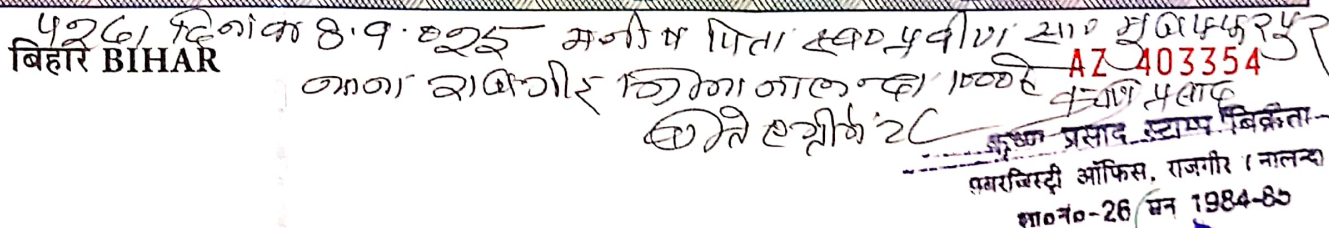 दिनांक 8.9.2025 मनीष पिता स्व० प्रवीण सा० मुजफ्फरपुर
बिहार BIHAR
AZ 403354
थाना राजगीर जिला नालन्दा 1000रु
कृष्ण प्रसाद
कृष्ण प्रसाद स्टाम्प बिक्रेता
अवरजिस्ट्री ऑफिस, राजगीर (नालन्दा
ला०नं०-26 सन 1984-85